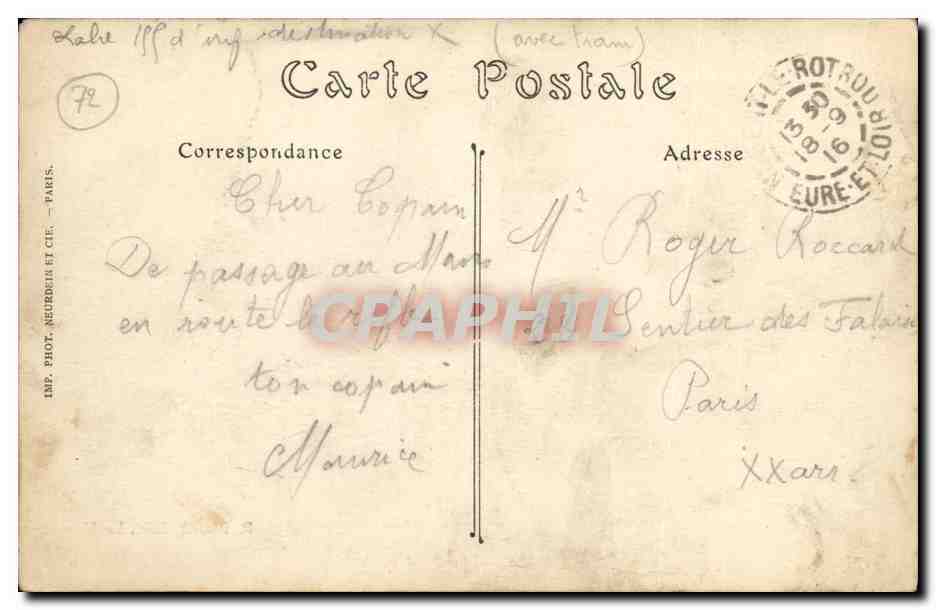 155 d'inf destination X (avec tram)
72
Carte Postale
Correspondance
Adresse
LE-ROTROU
EURE-ET-LOIR
13 30
8 -9
16
IMP. PHOT. NEURDEIN ET CIE. — PARIS.
Cher Copain
De passage au Mans
en route
ton copain
Maurice
Mr Roger Roccard
Sentier des
Paris
XXarr
CPAPHIL